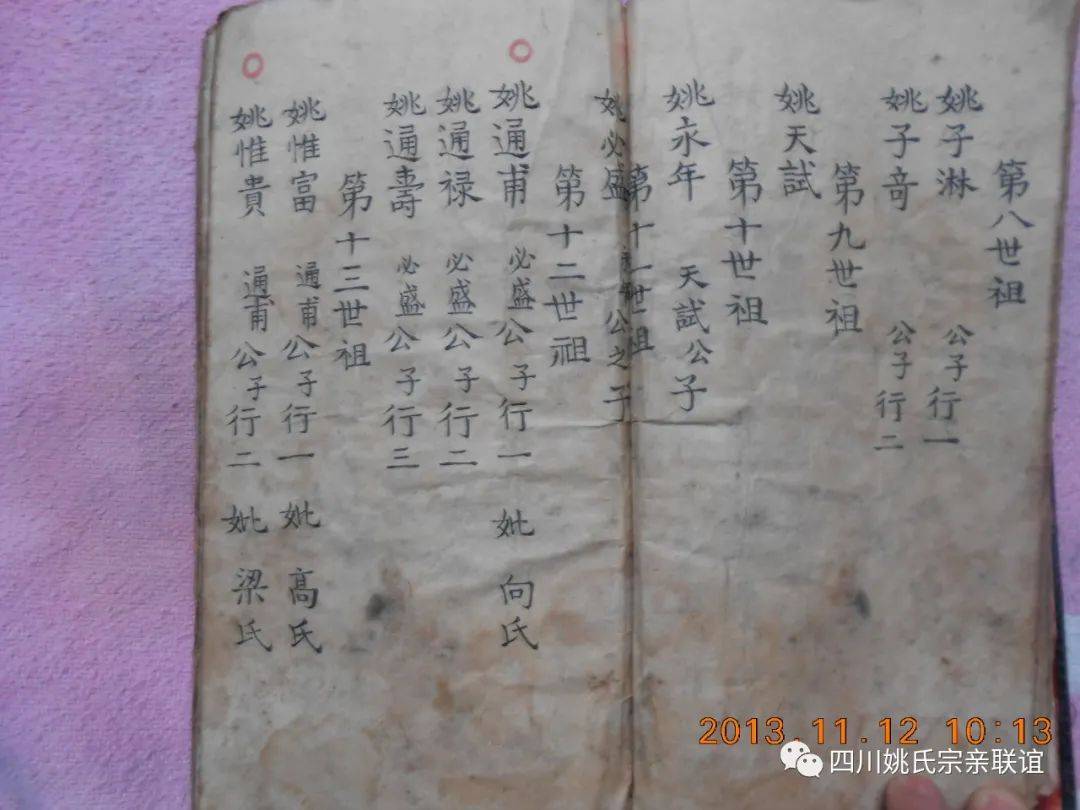 第八世祖
姚子淋 公子行一
姚子竒 公子行二
第九世祖
姚天試
第十世祖
姚永年 天試公子
第十一世祖
姚必盛 公之子
第十二世祖
姚通甫 必盛公子行一 妣 向氏
姚通禄 必盛公子行二
姚通壽 必盛公子行三
第十三世祖
姚惟富 通甫公子行一 妣 高氏
姚惟貴 通甫公子行二 妣 梁氏
2013.11.12 10:13
四川姚氏宗亲联谊